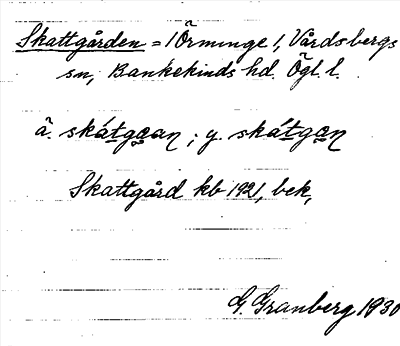 Skattgården = 1 Örminge 1, Vårdsbergs
sn, Bankekinds hd. Ögl. l.
ä. skátgɑan ; y. skátgɑn
Skattgård kb 1921, bek,
G. Granberg 1930